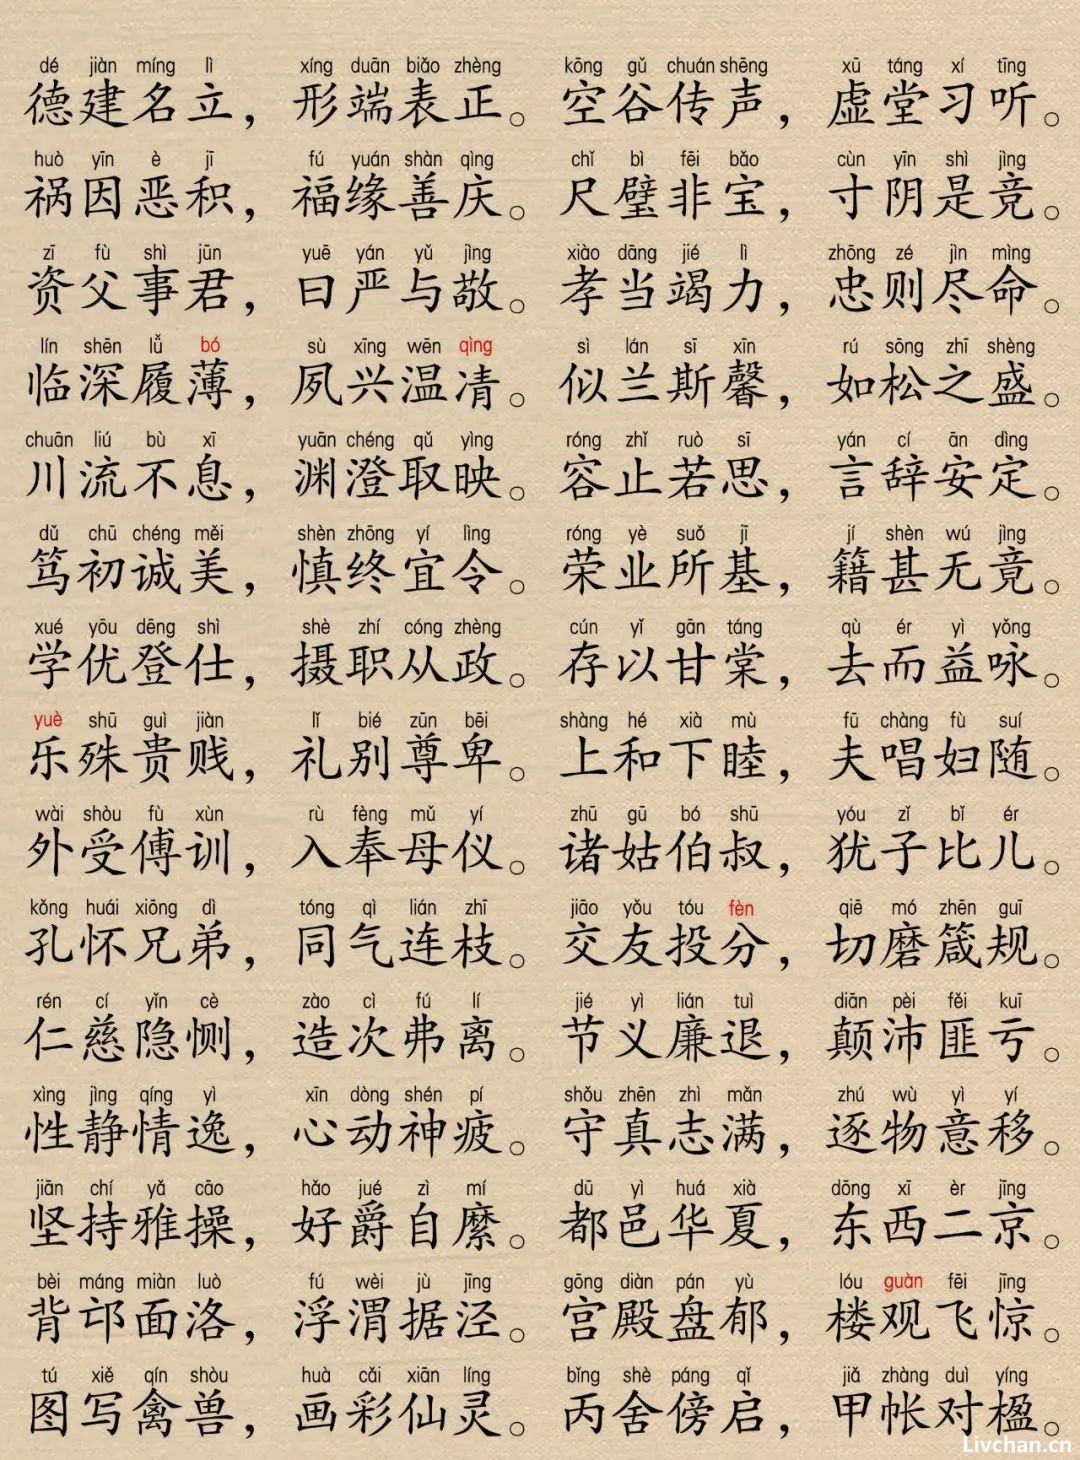 dé jiàn míng lì xíng duān biǎo zhèng kōng gǔ chuán shēng xū táng xí tīng
德建名立，形端表正。空谷传声，虚堂习听。
huò yīn è jī fú yuán shàn qìng chǐ bì fēi bǎo cùn yīn shì jìng
祸因恶积，福缘善庆。尺璧非宝，寸阴是竞。
zī fù shì jūn yuē yán yǔ jìng xiào dāng jié lì zhōng zé jìn mìng
资父事君，曰严与敬。孝当竭力，忠则尽命。
lín shēn lǚ bó sù xīng wēn qìng sì lán sī xīn rú sōng zhī shèng
临深履薄，夙兴温凊。似兰斯馨，如松之盛。
chuān liú bù xī yuān chéng qǔ yìng róng zhǐ ruò sī yán cí ān dìng
川流不息，渊澄取映。容止若思，言辞安定。
dǔ chū chéng měi shèn zhōng yí lìng róng yè suǒ jī jí shèn wú jìng
笃初诚美，慎终宜令。荣业所基，籍甚无竟。
xué yōu dēng shì shè zhí cóng zhèng cún yǐ gān táng qù ér yì yǒng
学优登仕，摄职从政。存以甘棠，去而益咏。
yuè shū guì jiàn lǐ bié zūn bēi shàng hé xià mù fū chàng fù suí
乐殊贵贱，礼别尊卑。上和下睦，夫唱妇随。
wài shòu fù xùn rù fèng mǔ yí zhū gū bó shū yóu zǐ bǐ ér
外受傅训，入奉母仪。诸姑伯叔，犹子比儿。
kǒng huái xiōng dì tóng qì lián zhī jiāo yǒu tóu fèn qiē mó zhēn guī
孔怀兄弟，同气连枝。交友投分，切磨箴规。
rén cí yǐn cè zào cì fú lí jié yì lián tuì diān pèi fěi kuī
仁慈隐恻，造次弗离。节义廉退，颠沛匪亏。
xìng jìng qíng yì xīn dòng shén pí shǒu zhēn zhì mǎn zhú wù yì yí
性静情逸，心动神疲。守真志满，逐物意移。
jiān chí yǎ cāo hǎo jué zì mí dū yì huá xià dōng xī èr jīng
坚持雅操，好爵自縻。都邑华夏，东西二京。
bèi máng miàn luò fú wèi jù jīng gōng diàn pán yù lóu guàn fēi jīng
背邙面洛，浮渭据泾。宫殿盘郁，楼观飞惊。
tú xiě qín shòu huà cǎi xiān líng bǐng shè páng qǐ jiǎ zhàng duì yíng
图写禽兽，画彩仙灵。丙舍傍启，甲帐对楹。
Livchan.cn